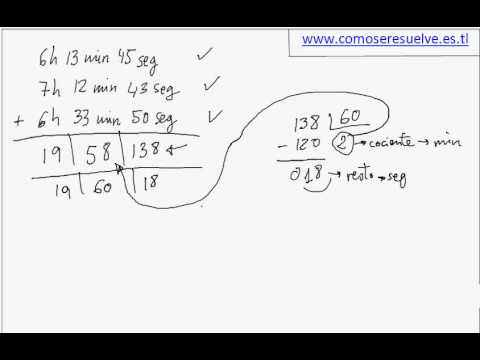 www.comoseresuelve.es.tl
6h 13 min 45 seg ✓
7h 12 min 43 seg ✓
+ 6h 33 min 50 seg ✓
19 | 58 | 138 ←
19 | 60 | 18
138 | 60
- 120 2 → cociente → min
018 → resto → seg